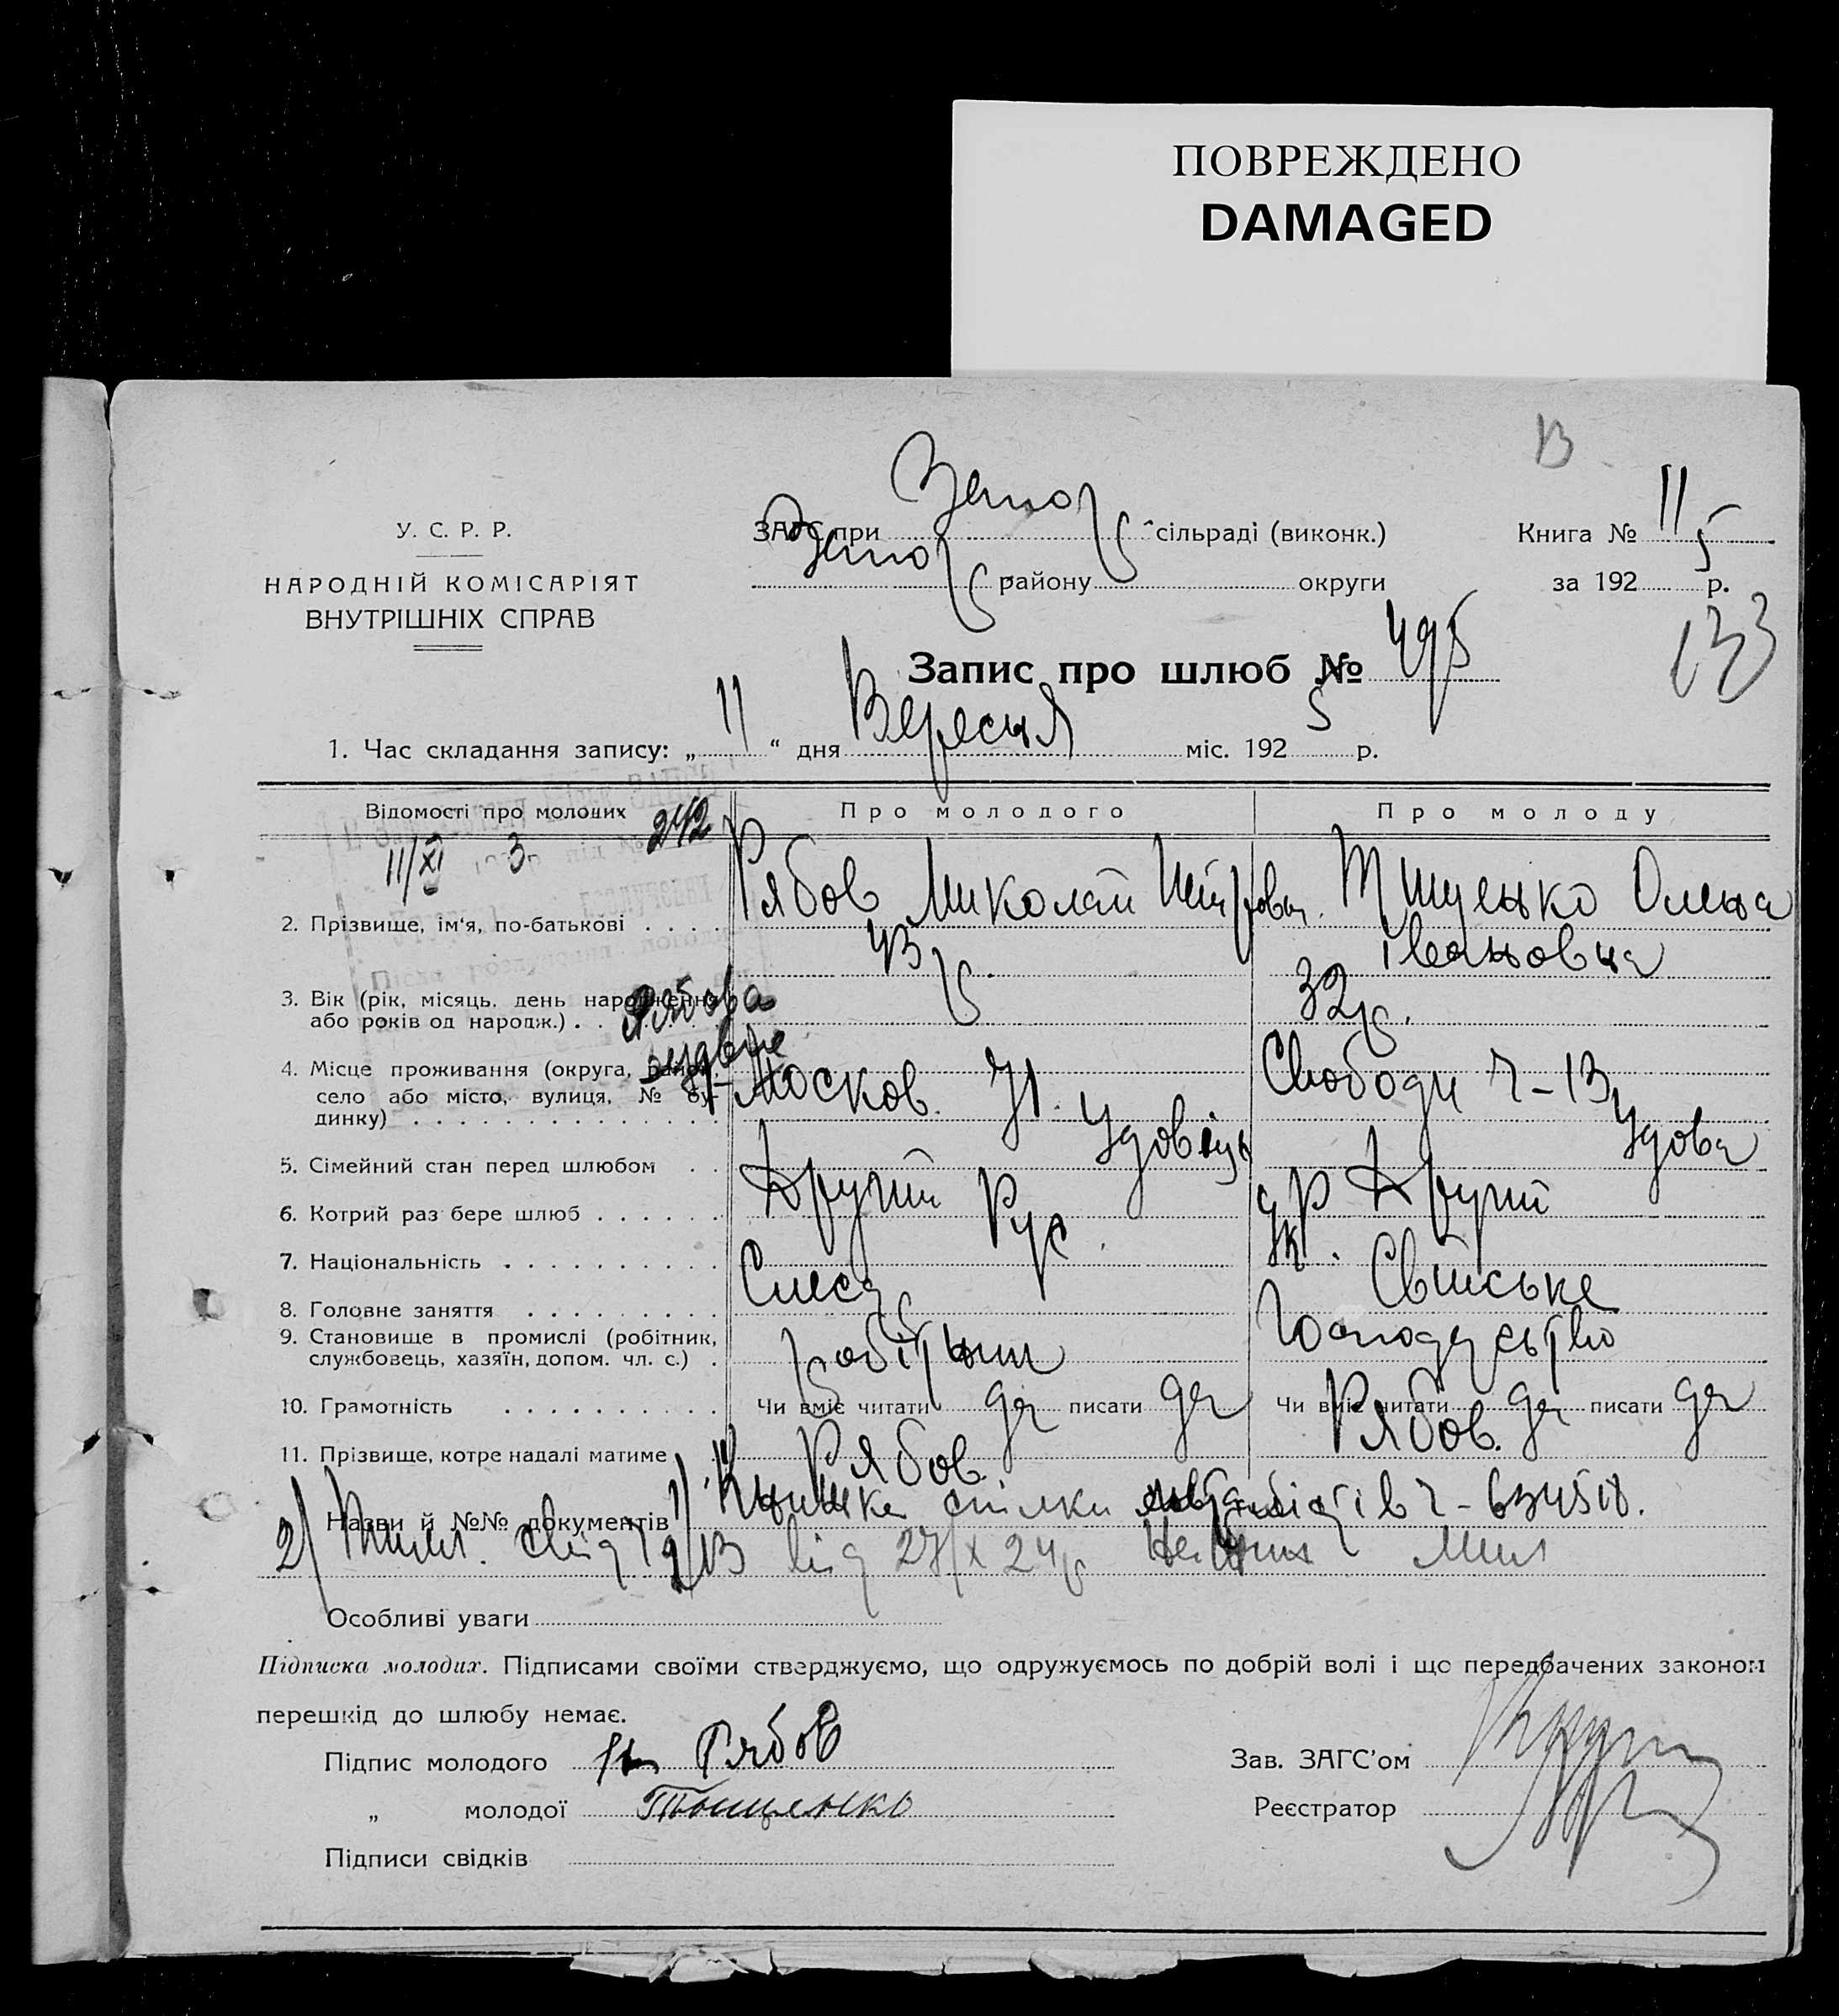 ПОВРЕЖДЕНО
DAMAGED
В
У. С. Р. Р.
НАРОДНІЙ КОМІСАРІЯТ
ВНУТРІШНІХ СПРАВ
ЗАГС при Запор сільраді (виконк.)
Запор району округи
Книга № 11
за 1925 р.
133
Запис про шлюб № 495
1. Час складання запису: „11“ дня Вересня міс. 1925 р.
Відомості про молодих 242
Про молодого
Про молоду
11/XI 3
2. Прізвище, ім'я, по-батькові . . . .
Рябов Миколай Петрович.
Тищенко Олена
Івановна
3. Вік (рік, місяць, день народження
або років од народж.) . .
43 р.
32 р.
Рябова
4. Місце проживання (округа, район,
село або місто, вулиця, № бу-
динку) . . . . . . . . . . . . . .
Москов. 71.
Свободи Ч-13
5. Сімейний стан перед шлюбом . .
Удовець
Удова
6. Котрий раз бере шлюб . . . . . .
Другий
Другий
7. Національність . . . . . . . . . .
Рус.
Укр.
8. Головне заняття . . . . . . . . .
Слесар
Свійське
9. Становище в промислі (робітник,
службовець, хазяїн, допом. чл. с.) .
робітник
Господарство
10. Грамотність . . . . . . . . . .
Чи вміє читати да писати да
Чи вміє читати да писати да
11. Прізвище, котре надалі матиме
Рябов.
Рябов.
Назви й №№ документів 1) Книжка спілки Ч-
2) від 27/X 24 р. Мил
Особливі уваги
Підписка молодих. Підписами своїми стверджуємо, що одружуємось по добрій волі і що передбачених законом
перешкід до шлюбу немає.
Підпис молодого Рябов
Зав. ЗАГС'ом
„ молодої Тыщенко
Реєстратор
Підписи свідків